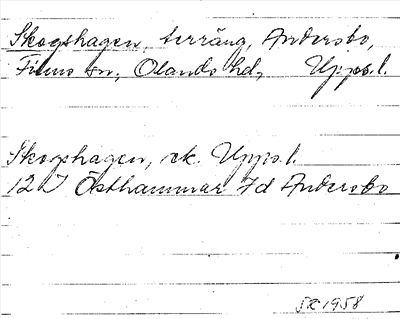 Skogshagen, terräng, Andersbo,
Films sn, Olands hd, Upps.l.
Skogshagen, ek. Upps.l.
12 I Östhammar 7d Andersbo
SR 1958